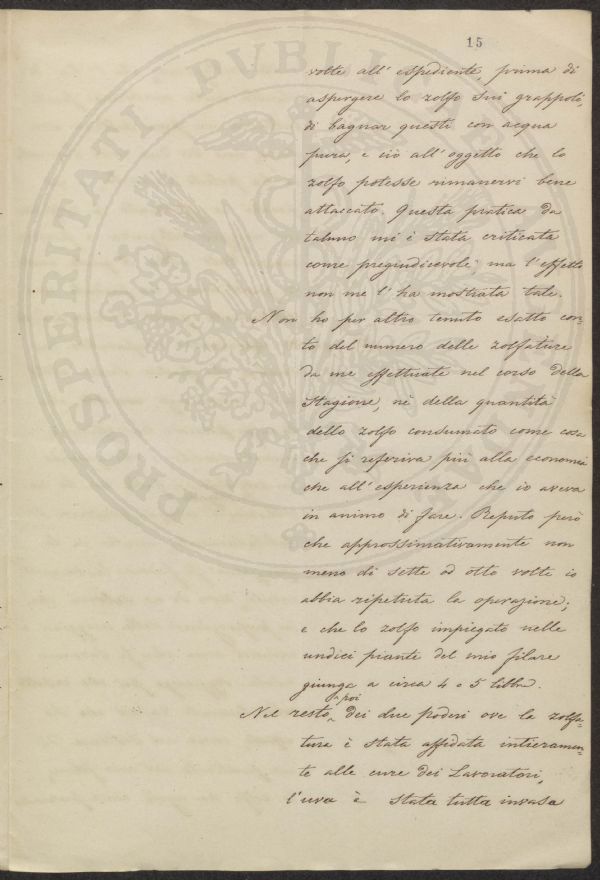 15
PROSPERITATI PVBLI
volte all'espediente, prima di
aspergere lo zolfo sui grappoli,
di bagnar questi con acqua
pura, e ciò all'oggetto che lo
zolfo potesse rimanervi bene
attaccato. Questa pratica da
taluno mi è stata criticata
come pregiudicevole; ma l'effetto
non me l'ha mostrata tale.
Non ho per altro tenuto esatto con-
to del numero delle zolfature
da me effettuate nel corso della
Stagione, nè della quantità
dello zolfo consumato come cosa
che si referiva più alla economia
che all'esperienza che io aveva
in animo di fare. Reputo però
che approssimativamente non
meno di sette od otto volte io
abbia ripetuta la operazione;
e che lo zolfo impiegato nelle
undici piante del mio filare
giunga a circa 4 o 5 libbre.
Nel resto poi dei due poderi ove la zolfa-
tura è stata affidata intieramen-
te alle cure dei Lavoratori,
l'uva è stata tutta invasa